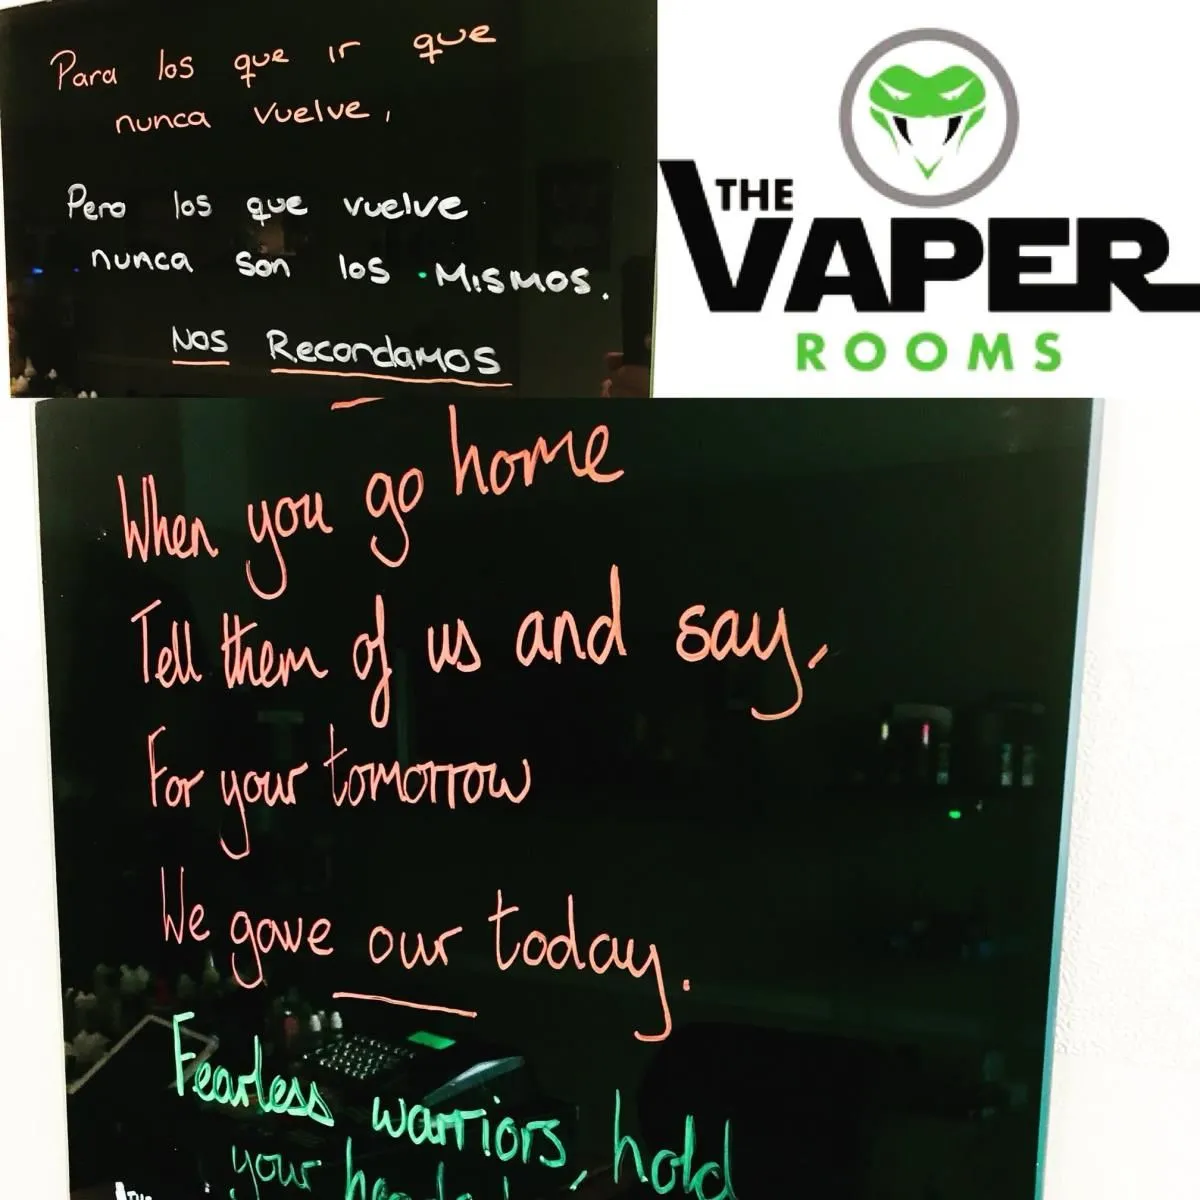 Para los que ir que
nunca vuelve,
Pero los que vuelve
nunca son los Mismos.
Nos Recordamos
THE
VAPER
ROOMS
When you go home
Tell them of us and say,
For your tomorrow
We gave our today.
Fearless warriors, hold
your
THE